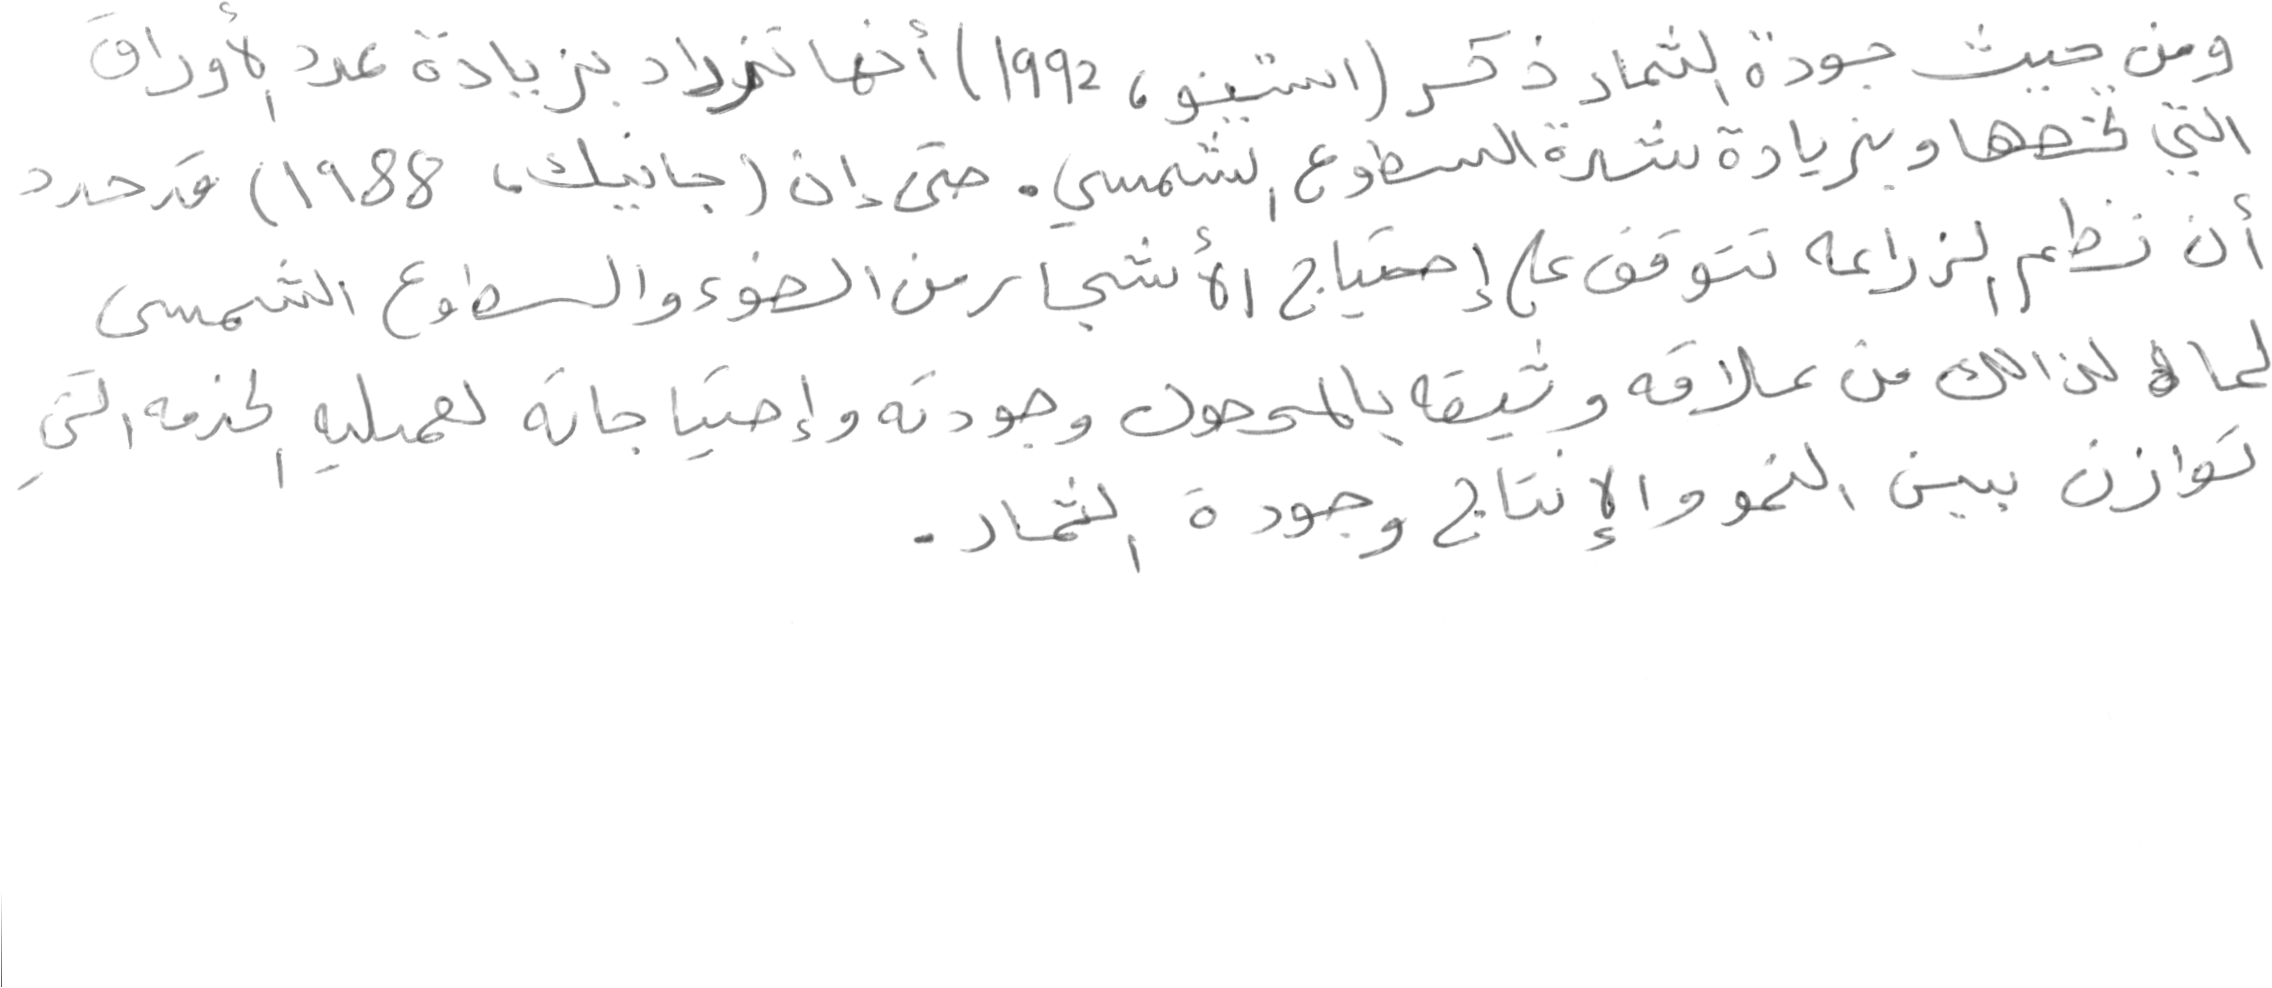 ومن حيث جودة الثمار ذكر (استينو، 1992) أنها تزداد بزيادة عدد الأوراق
التي تخصها وبزيادة شدة السطوع الشمسي. حتى إن (جانيك، 1988) قد حدد
أن نظم الزراعه تتوقف على إحتياج الأشجار من الضوء والسطوع الشمسى
لما لذالك من علاقه وثيقه بالمحصول وجودته وإحتياجاته لعمليه الخدمه التي
توازن بين النمو والإنتاج وجودة الثمار.